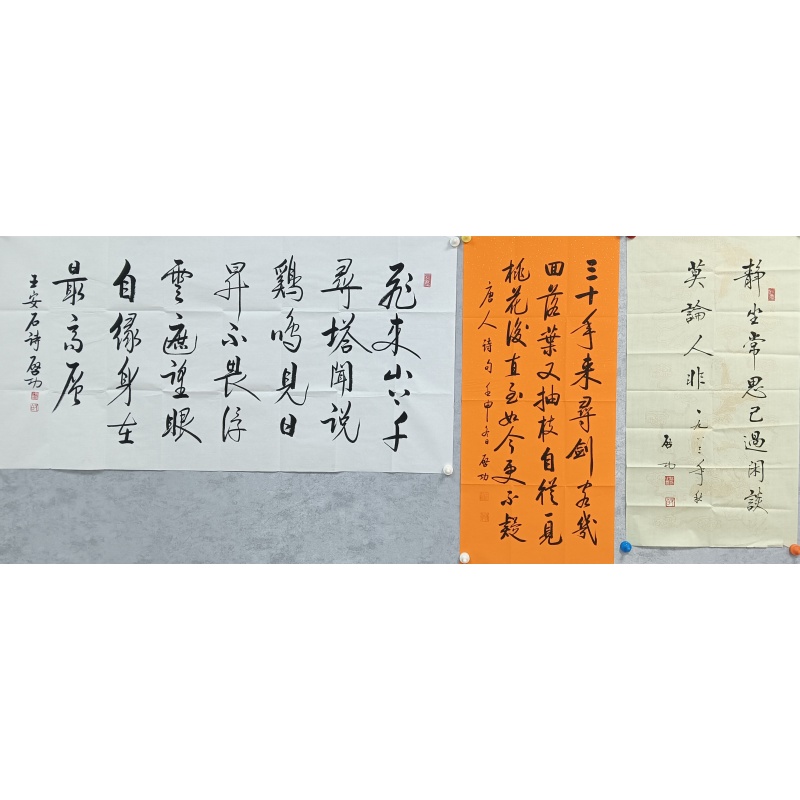 飛來山上千
尋塔聞説
鷄鳴見日
昇不畏浮
雲遮望眼
自緣身在
最高層
王安石詩 啟功
三十年來尋劍客幾
回落葉又抽枝自從一見
桃花後直至如今更不疑
唐人詩句 壬申冬日 啟功
靜坐常思己過閑談
莫論人非 一九八三年秋
啟功